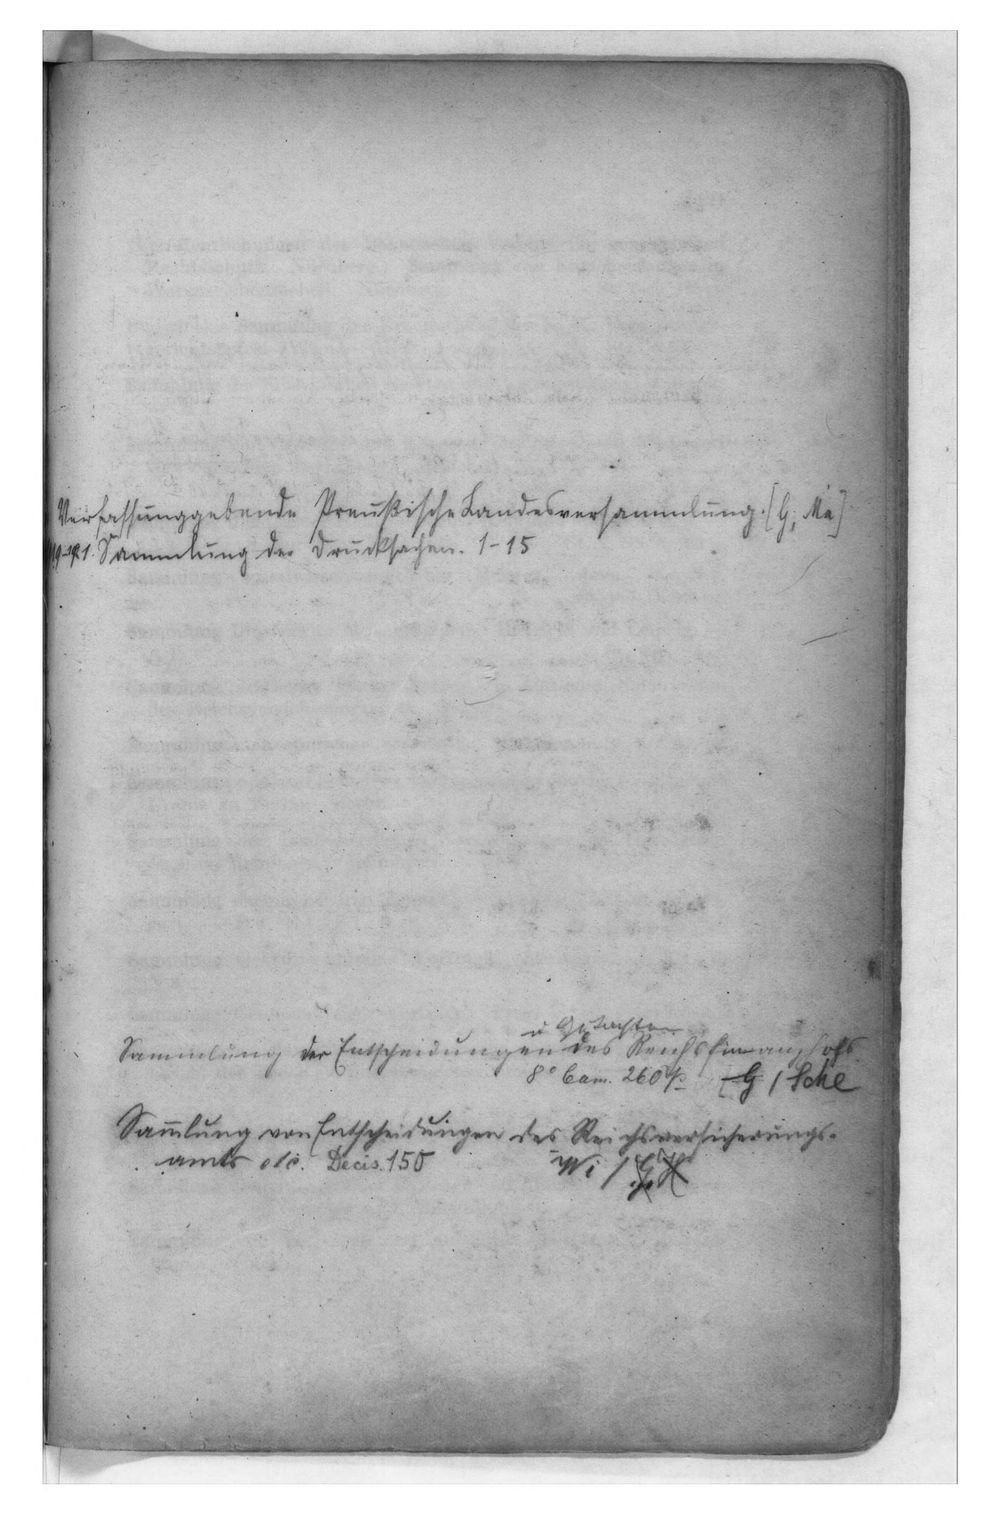 Verfassunggebende Preußische Landesversammlung. [G, Ma]
1919-1921. Sammlung der Drucksachen. 1-15
u Gutachten
Sammlung der Entscheidungen des Reichsfinanzhofs
8° Cam. 260 G / Sche
Sam̄lung von Entscheidungen des Reichsversicherungs-
amts etc. Decis. 150 Wi /